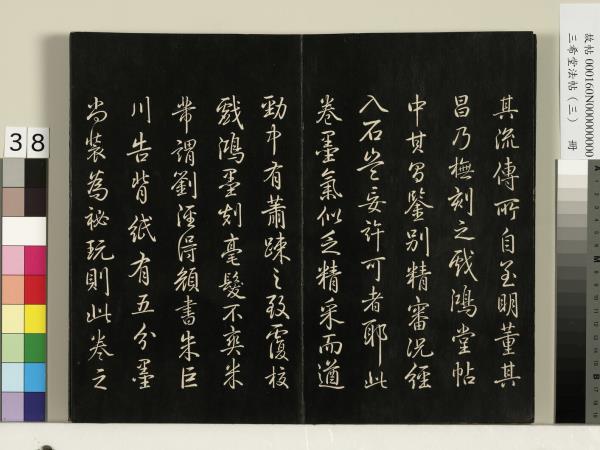 故帖 000160N000000000
三希堂法帖（三） 冊
其流傳所自至明董其
昌乃橅刻之戲鴻堂帖
中其昌鑒别精審況經
入石豈妄許可者耶此
卷墨氣似乏精采而遒
勁中有蕭疎之致覆校
戲鴻墨刻毫髮不爽米
芾謂劉涇得顏書朱巨
川告背紙有五分墨
尚裝為祕玩則此卷之
38